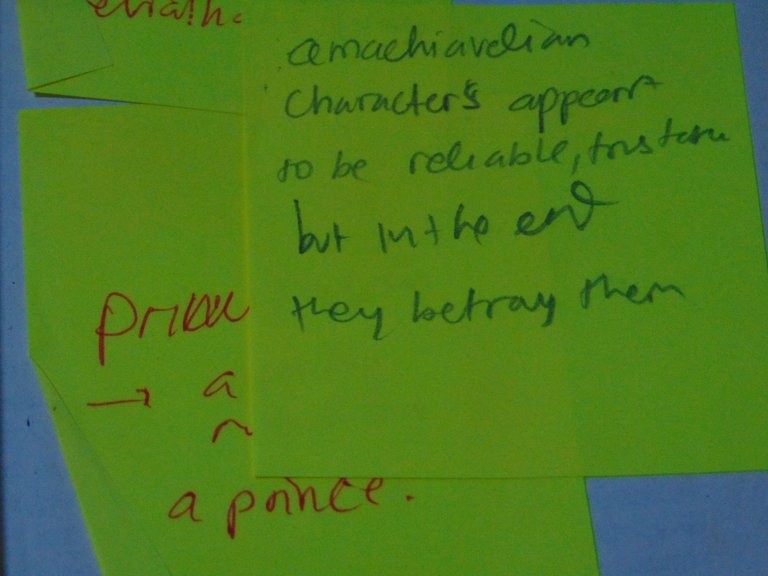 a machiavelian
characters appears
to be reliable,
but in the end
they betray them
→ a
a prince.